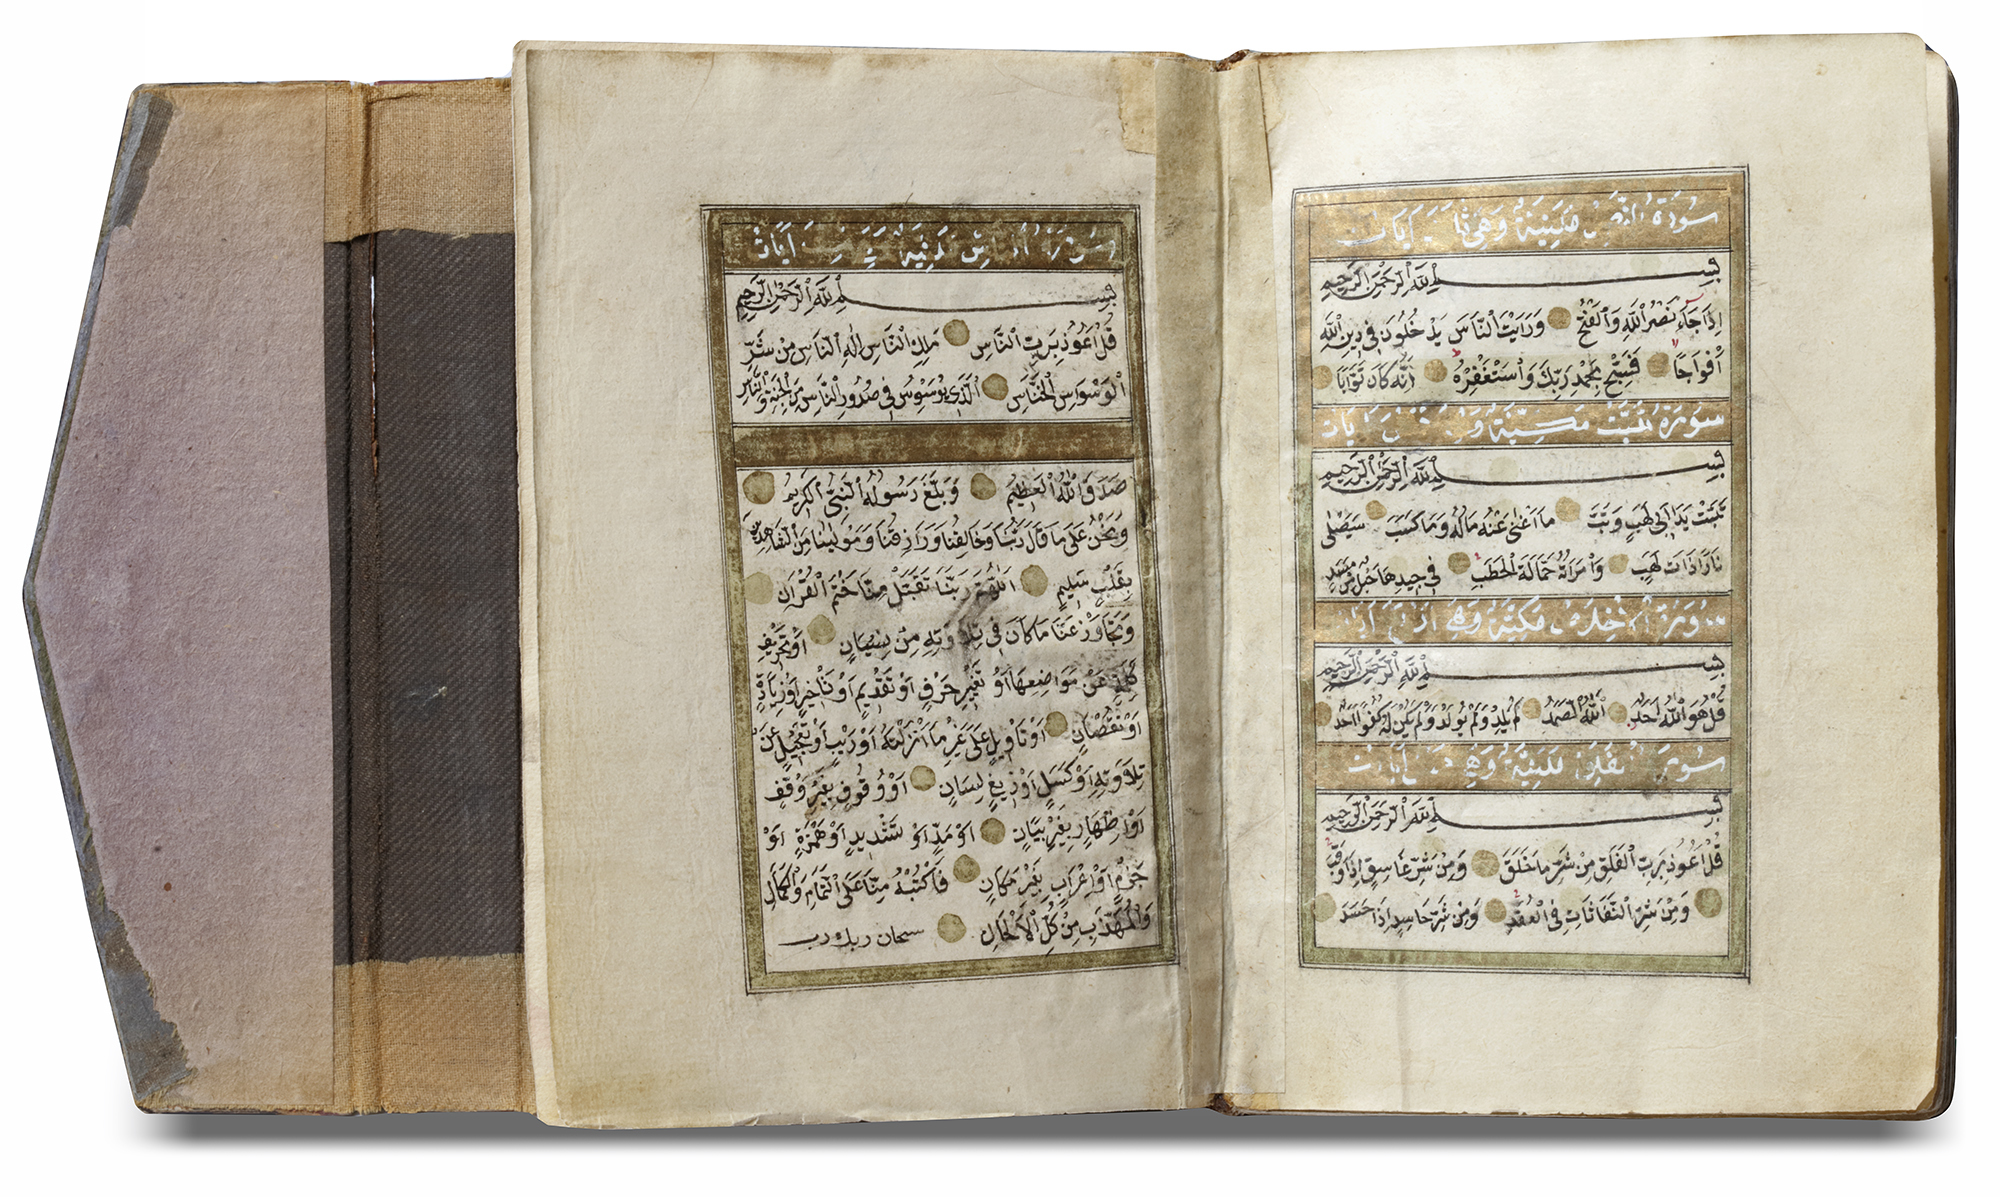 سورة النصر مدنية وهي ثلث ايات
بسم الله الرحمن الرحيم
اِذَا جَاءَ نَصْرُ اللّٰهِ وَالْفَتْحُ وَرَاَيْتَ النَّاسَ يَدْخُلُونَ فِى دِينِ اللّٰهِ
اَفْوَاجًا فَسَبِّحْ بِحَمْدِ رَبِّكَ وَاسْتَغْفِرْهُ اِنَّهُ كَانَ تَوَّابًا
سورة تبت مكية وهي ايات
بسم الله الرحمن الرحيم
تَبَّتْ يَدَا اَبِى لَهَبٍ وَتَبَّ مَا اَغْنٰى عَنْهُ مَالُهُ وَمَا كَسَبَ سَيَصْلٰى
نَارًا ذَاتَ لَهَبٍ وَامْرَاَتُهُ حَمَّالَةَ الْحَطَبِ فِى جِيدِهَا حَبْلٌ مِنْ مَسَدٍ
سورة الاخلاص مكية وهي اربع ايات
بسم الله الرحمن الرحيم
قُلْ هُوَ اللّٰهُ اَحَدٌ اَللّٰهُ الصَّمَدُ لَمْ يَلِدْ وَلَمْ يُولَدْ وَلَمْ يَكُنْ لَهُ كُفُوًا اَحَدٌ
سورة الفلق مدنية وهي ايات
بسم الله الرحمن الرحيم
قُلْ اَعُوذُ بِرَبِّ الْفَلَقِ مِنْ شَرِّ مَا خَلَقَ وَمِنْ شَرِّ غَاسِقٍ اِذَا وَقَبَ
وَمِنْ شَرِّ النَّفَّاثَاتِ فِى الْعُقَدِ وَمِنْ شَرِّ حَاسِدٍ اِذَا حَسَدَ
سورة الناس مدنية وهي ايات
بسم الله الرحمن الرحيم
قُلْ اَعُوذُ بِرَبِّ النَّاسِ مَلِكِ النَّاسِ اِلٰهِ النَّاسِ مِنْ شَرِّ
الْوَسْوَاسِ الْخَنَّاسِ الَّذِى يُوَسْوِسُ فِى صُدُورِ النَّاسِ مِنَ الْجِنَّةِ وَالنَّاسِ
صَدَقَ اللّٰهُ الْعَظِيمُ وَبَلَّغَ رَسُولُهُ النَّبِىُّ الْكَرِيمُ
وَنَحْنُ عَلٰى مَا قَالَ رَبُّنَا وَخَالِقُنَا وَرَازِقُنَا وَمَوْلٰينَا مِنَ الشَّاهِدِينَ
بِقَلْبٍ سَلِيمٍ اَللّٰهُمَّ رَبَّنَا تَقَبَّلْ مِنَّا خَتْمَ الْقُرْاٰنِ
وَتَجَاوَزْ عَنَّا مَا كَانَ فِى تِلَاوَتِهِ مِنْ نِسْيَانٍ اَوْ تَحْرِيفِ
كَلِمَةٍ عَنْ مَوَاضِعِهَا اَوْ تَغْيِيرِ حَرْفٍ اَوْ تَقْدِيمٍ اَوْ تَاْخِيرٍ اَوْ زِيَادَةٍ
اَوْ نُقْصَانٍ اَوْ تَاْوِيلٍ عَلٰى غَيْرِ مَا اَنْزَلْتَهُ اَوْ رَيْبٍ اَوْ تَعْجِيلٍ عَنْ
تِلَاوَتِهِ اَوْ كَسَلٍ اَوْ زَيْغِ لِسَانٍ اَوْ وُقُوفٍ بِغَيْرِ وَقْفٍ
اَوْ اِظْهَارٍ بِغَيْرِ بَيَانٍ اَوْ مَدٍّ اَوْ تَشْدِيدٍ اَوْ هَمْزَةٍ اَوْ
جَزْمٍ اَوْ اِعْرَابٍ بِغَيْرِ مَكَانٍ فَاكْتُبْهُ مِنَّا عَلَى التَّمَامِ وَالْكَمَالِ
وَالْمُهَذَّبِ مِنْ كُلِّ الْاَلْحَانِ سبحان ربك رب